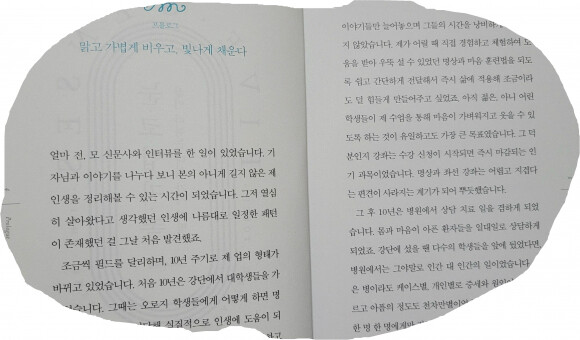 프롤로그
맑고 가볍게 비우고, 빛나게 채운다
얼마 전, 모 신문사와 인터뷰를 한 일이 있었습니다. 기
자님과 이야기를 나누다 보니 본의 아니게 길지 않은 제
인생을 정리해볼 수 있는 시간이 되었습니다. 그저 열심
히 살아왔다고 생각했던 인생에 나름대로 일정한 패턴
이 존재했던 걸 그날 처음 발견했죠.
조금씩 필드를 달리하며, 10년 주기로 제 업의 형태가
바뀌고 있었습니다. 처음 10년은 강단에서 대학생들을 가
습니다. 그때는 오로지 학생들에게 어떻게 하면 명
실질적으로 인생에 도움이 되
하고
Prologue
이야기들만 늘어놓으며 그들의 시간을 낭비하
지 않았습니다. 제가 어릴 때 직접 경험하고 체험하며 도
움을 받아 우뚝 설 수 있었던 명상과 마음 훈련법을 되도
록 쉽고 간단하게 전달해서 즉시 삶에 적용해 조금이라
도 덜 힘들게 만들어주고 싶었죠. 아직 젊은, 아니 어린
학생들이 제 수업을 통해 마음이 가벼워지고 웃을 수 있
도록 하는 것이 유일하고도 가장 큰 목표였습니다. 그 덕
분인지 강좌는 수강 신청이 시작되면 즉시 마감되는 인
기 과목이었습니다. 명상과 좌선 강좌는 어렵고 지겹다
는 편견이 사라지는 계기가 되어 뿌듯했습니다.
그 후 10년은 병원에서 상담 치료 일을 겸하게 되었
습니다. 몸과 마음이 아픈 환자들을 일대일로 상담하게
되었죠. 강단에 섰을 땐 다수의 학생들을 앞에 뒀었다면
병원에서는 그야말로 인간 대 인간의 일이었습니다.
은 병이라도 케이스별, 개인별로 증세와 원인이
르고 아픔의 정도도 천차만별이었
한 명 한 명에게만